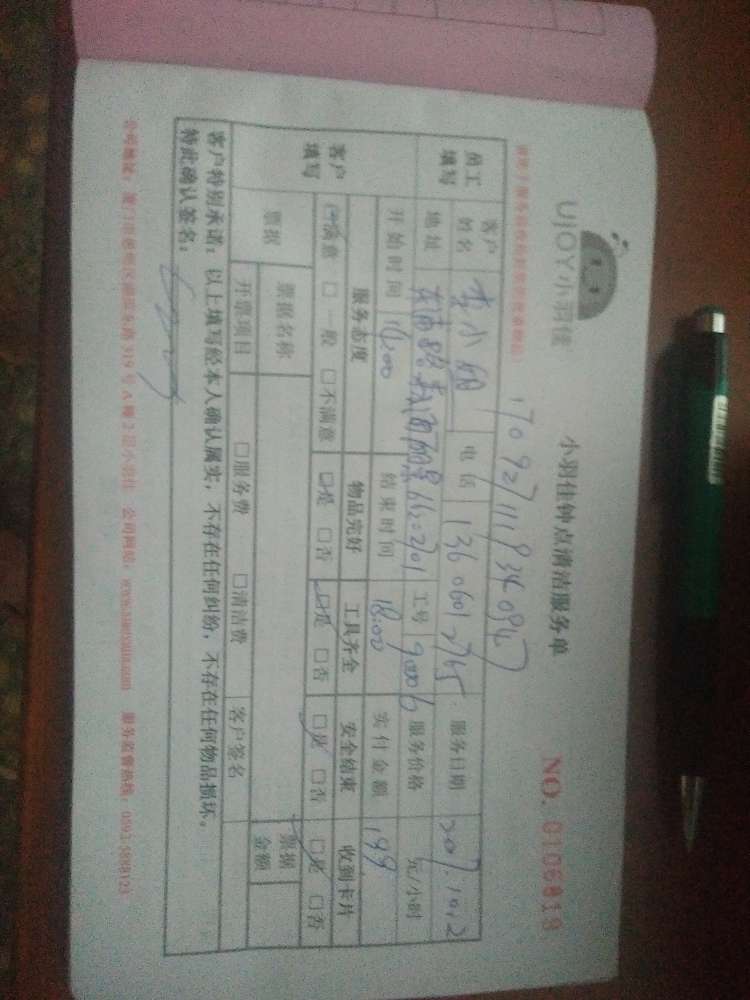 UJOY小羽佳
小羽佳钟点清洁服务单
NO. 0106818
170927111934094
员工填写
客户姓名 李小丽 电话 13606012765 服务日期 2017.10.2
地址 工号 90006 服务价格 元/小时
客户填写
开始时间 14:00 结束时间 18:00 实付金额 199
服务态度 物品完好 工具齐全 安全结束 收到卡片
□满意 □一般 □不满意 □是 □否 □是 □否 □是 □否 □是 □否
票据 票据名称 票据金额
开票项目 □服务费 □清洁费 客户签名
客户特别承诺：以上填写经本人确认属实，不存在任何纠纷，不存在任何物品损坏。
特此确认签名：
公司地址：厦门市思明区 319号A幢2层小羽佳 公司网站：www.xiaoyujia.com 服务监督热线：0592-5888123